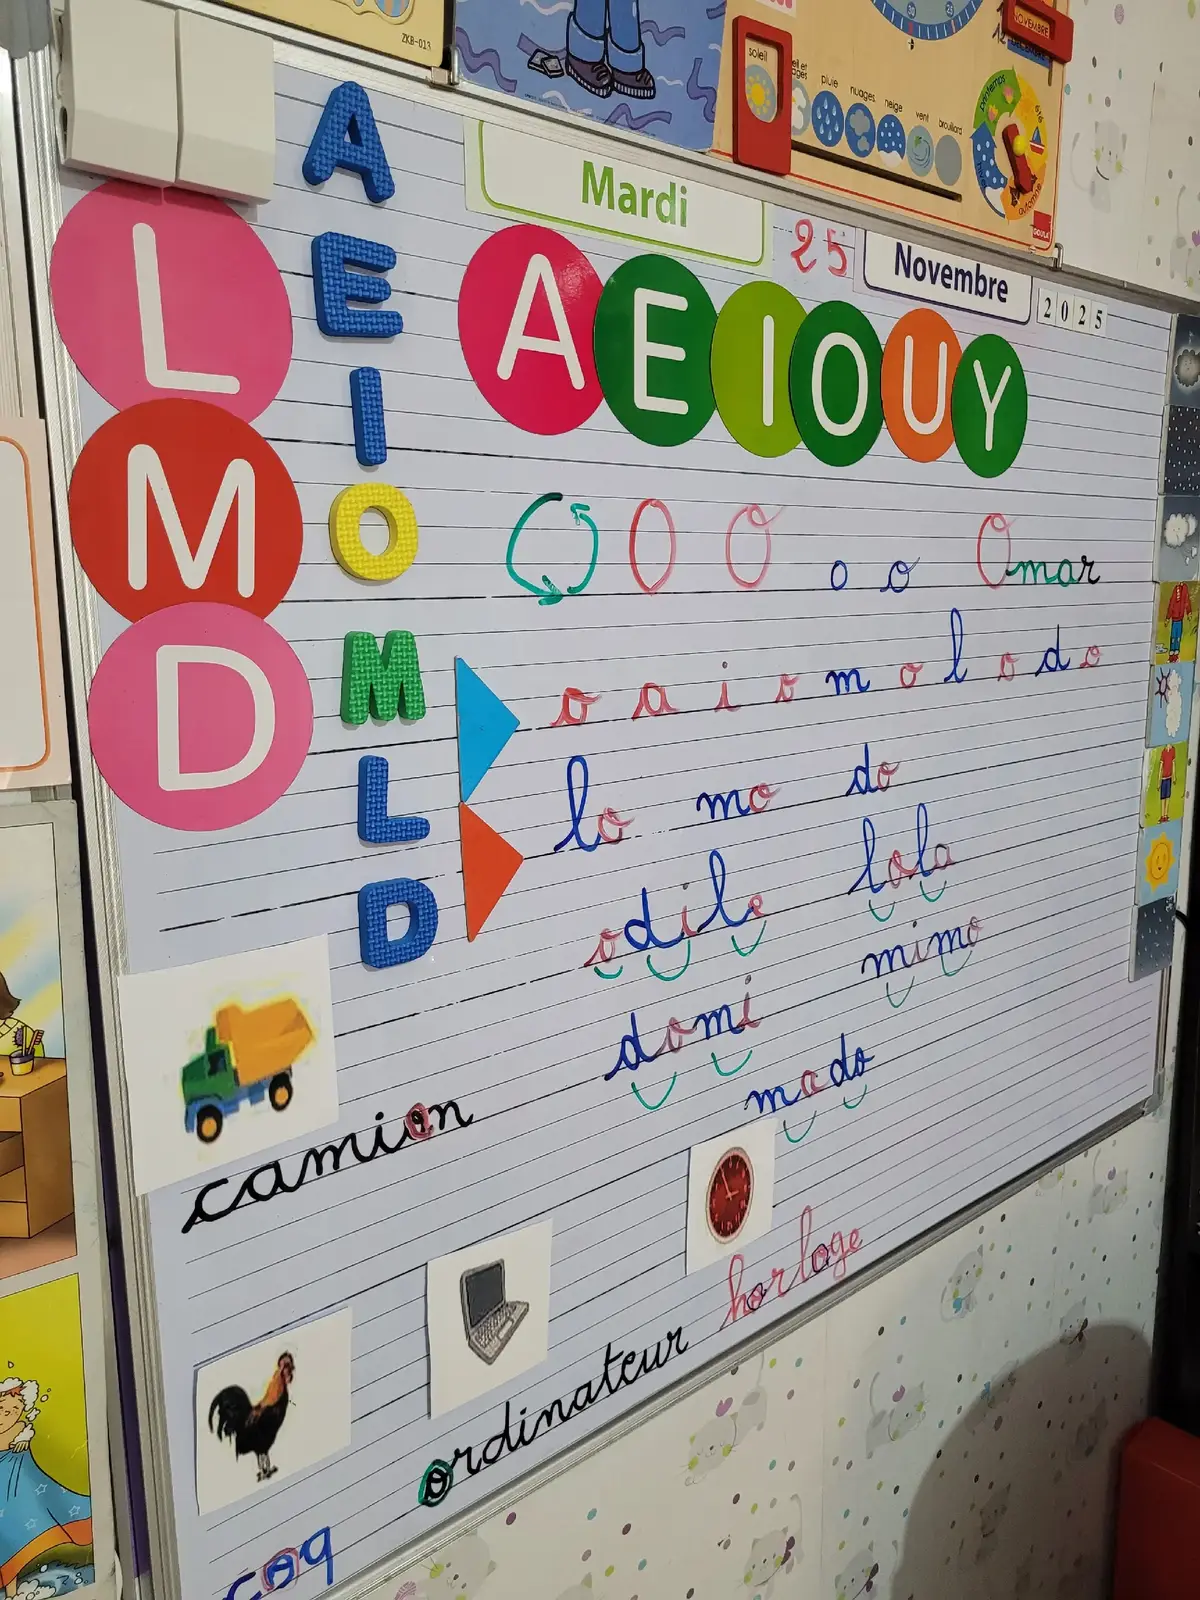 ZKB-013
soleil
pluie
nuages
neige
vent
brouillard
NOVEMBRE
printemps
été
automne
GOULA
Mardi 25 Novembre 2025
L
M
D
A
E
I
O
M
L
D
A E I O U Y
O O O o o Omar
o a i o m o l o d o
lo mo do
odile lola
domi mimo
modo
camion
horloge
ordinateur
coq